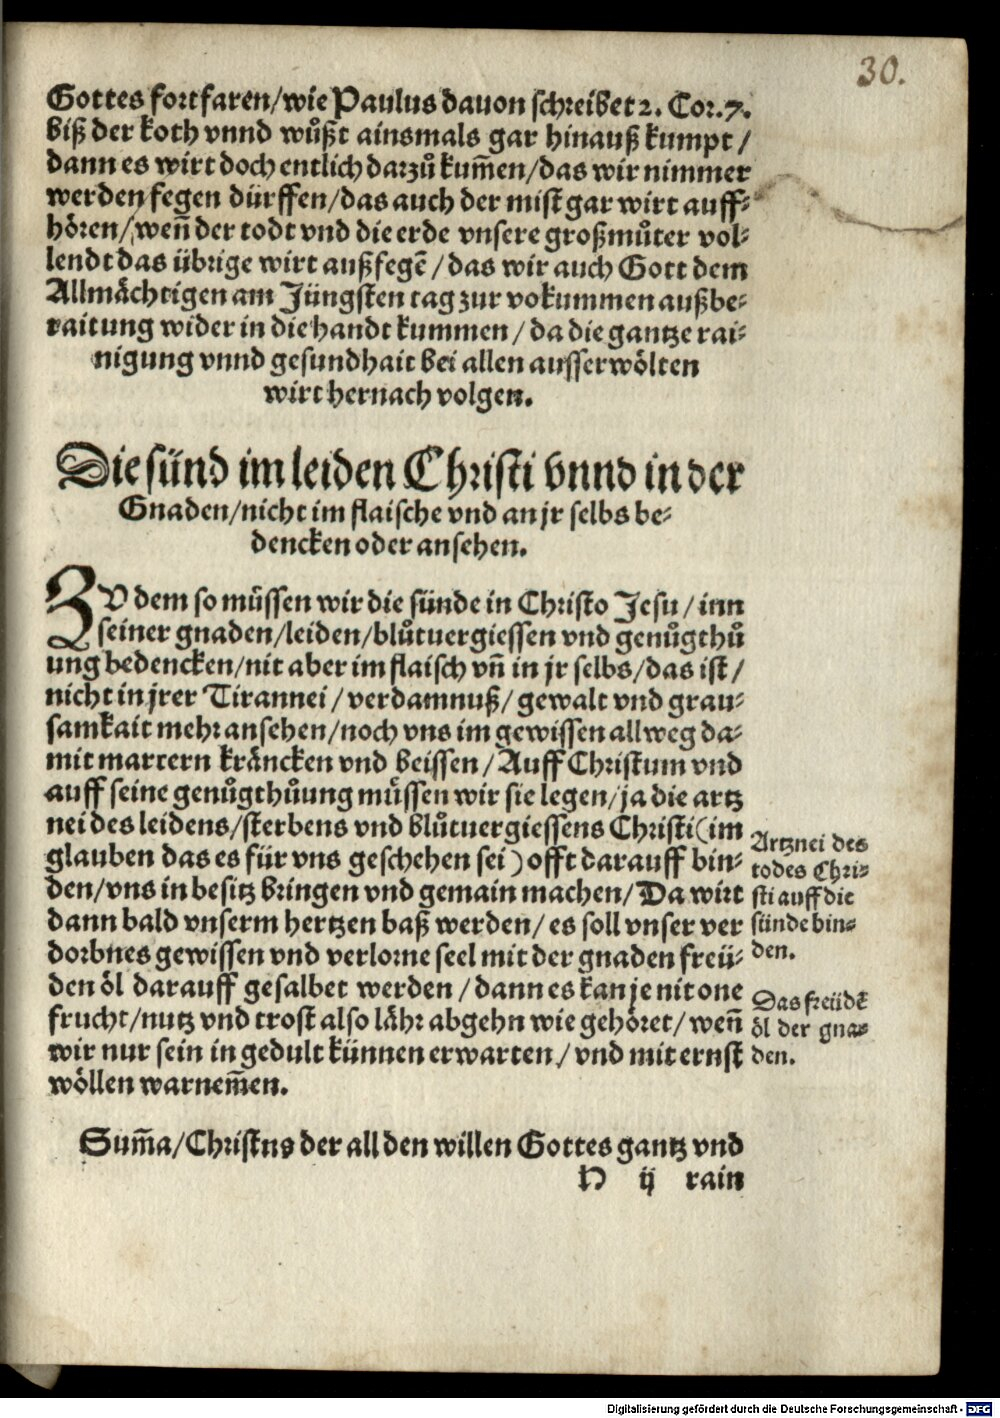 30.
Gottes fortfaren/wie Paulus dauon schreibet 2. Cor. 7.
biß der koth vnnd wůßt ainsmals gar hinauß kumpt/
dann es wirt doch entlich darzů kum̄en/das wir nimmer
werden fegen dürffen/das auch der mist gar wirt auff⸗
hören/wen̄ der todt vnd die erde vnsere großmůter vol⸗
lendt das übrige wirt außfegē/das wir auch Gott dem
Allmächtigen am Jüngsten tag zur vokummen außbe⸗
raitung wider in die handt kummen/da die gantze rai⸗
nigung vnnd gesundhait bei allen ausserwölten
wirt hernach volgen.
Die sünd im leiden Christi vnnd in der
Gnaden/nicht im flaische vnd an jr selbs be⸗
dencken oder ansehen.
ZV dem so müssen wir die sünde in Christo Jesu/inn
seiner gnaden/leiden/blůtuergiessen vnd genůgthů
ung bedencken/nit aber im flaisch vn̄ in jr selbs/das ist/
nicht in jrer Tirannei/verdamnuß/gewalt vnd grau⸗
samkait mehr ansehen/noch vns im gewissen allweg da⸗
mit martern kräncken vnd beissen/Auff Christum vnd
auff seine genůgthůung müssen wir sie legen/ja die artz
nei des leidens/sterbens vnd blůtuergiessens Christi (im
glauben das es für vns geschehen sei) offt darauff bin⸗
den/vns in besitz bringen vnd gemain machen/Da wirt
dann bald vnserm hertzen baß werden/es soll vnser ver
dorbnes gewissen vnd verlorne seel mit der gnaden freü⸗
den öl darauff gesalbet werden/dann es kan je nit one
frucht/nutz vnd trost also lähr abgehn wie gehöret/wen̄
wir nur sein in gedult künnen erwarten/vnd mit ernst
wöllen warnem̄en.
Artznei des
todes Chri⸗
sti auff die
sünde bin⸗
den.
Das freüdē
öl der gna⸗
den.
Sum̄a/Christns der all den willen Gottes gantz vnd
N ij rain
Digitalisierung gefördert durch die Deutsche Forschungsgemeinschaft - DFG